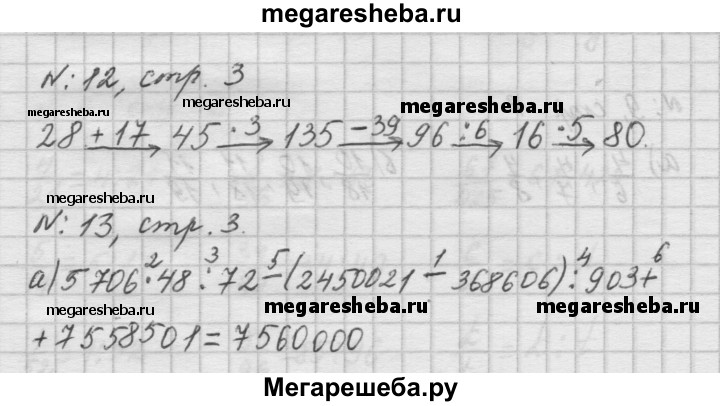 megaresheba.ru
N: 12, стр. 3
megaresheba.ru
megaresheba.ru megaresheba.ru
28 +17→ 45 ·3→ 135 −39→ 96 :6→ 16 ·5→ 80.
megaresheba.ru megaresheba.ru
N: 13, стр. 3.
2 3 5 1 4 6
а) 5706·48:72−(2450021−368606):903+
megaresheba.ru megaresheba.ru megaresheba.ru
+7558501=7560000
Мегарешеба.ру